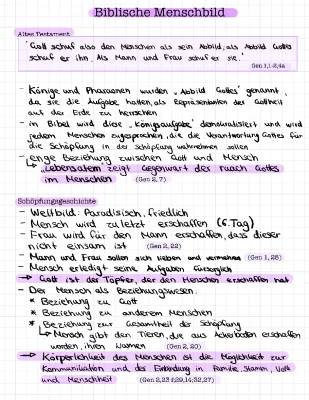 Biblische Menschbild
Altes Testament
"Gott schuf also den Menschen als sein Abbild; als Abbild Gottes
schuf er ihn. Als Mann und Frau schuf er sie."
Gen 1,1-2,4a
- Könige und Pharaonen wurden "Abbild Gottes" genannt,
da sie die Aufgabe hatten, als Repräsentanten der Gottheit
auf der Erde zu herrschen
- in Bibel wird diese "Königsaufgabe" demokratisiert und wird
jedem Menschen zugesprochen, die die Verantwortung Gottes für
die Schöpfung in der Schöpfung wahrnehmen sollen
- enge Beziehung zwischen Gott und Mensch
↳ Lebensatem zeigt Gegenwart des ruach Gottes
im Menschen (Gen 2, 7)
Schöpfungsgeschichte
- Weltbild: Paradisisch, friedlich
- Mensch wird zuletzt erschaffen (6. Tag)
- Frau wird für den Mann erschaffen, dass dieser
nicht einsam ist (Gen 2, 22)
- Mann und Frau sollen sich lieben und vermehren (Gen 1, 28)
- Mensch erledigt seine Aufgaben fürsorglich
→ Gott ist der Töpfer, der den Menschen erschaffen hat
- Der Mensch als Beziehungswesen:
* Beziehung zu Gott
* Beziehung zu anderem Menschen
* Beziehung zur Gesamtheit der Schöpfung
↳ Mensch gibt den Tieren, die aus Ackerboden erschaffen
worden, ihren Namen (Gen 2, 20)
→ Körperlichkeit des Menschen ist die Möglichkeit zur
Kommunikation und der Einbindung in Familie, Stamm, Volk
und Menschheit (Gen 2,23 f; 29,14; 32,27)